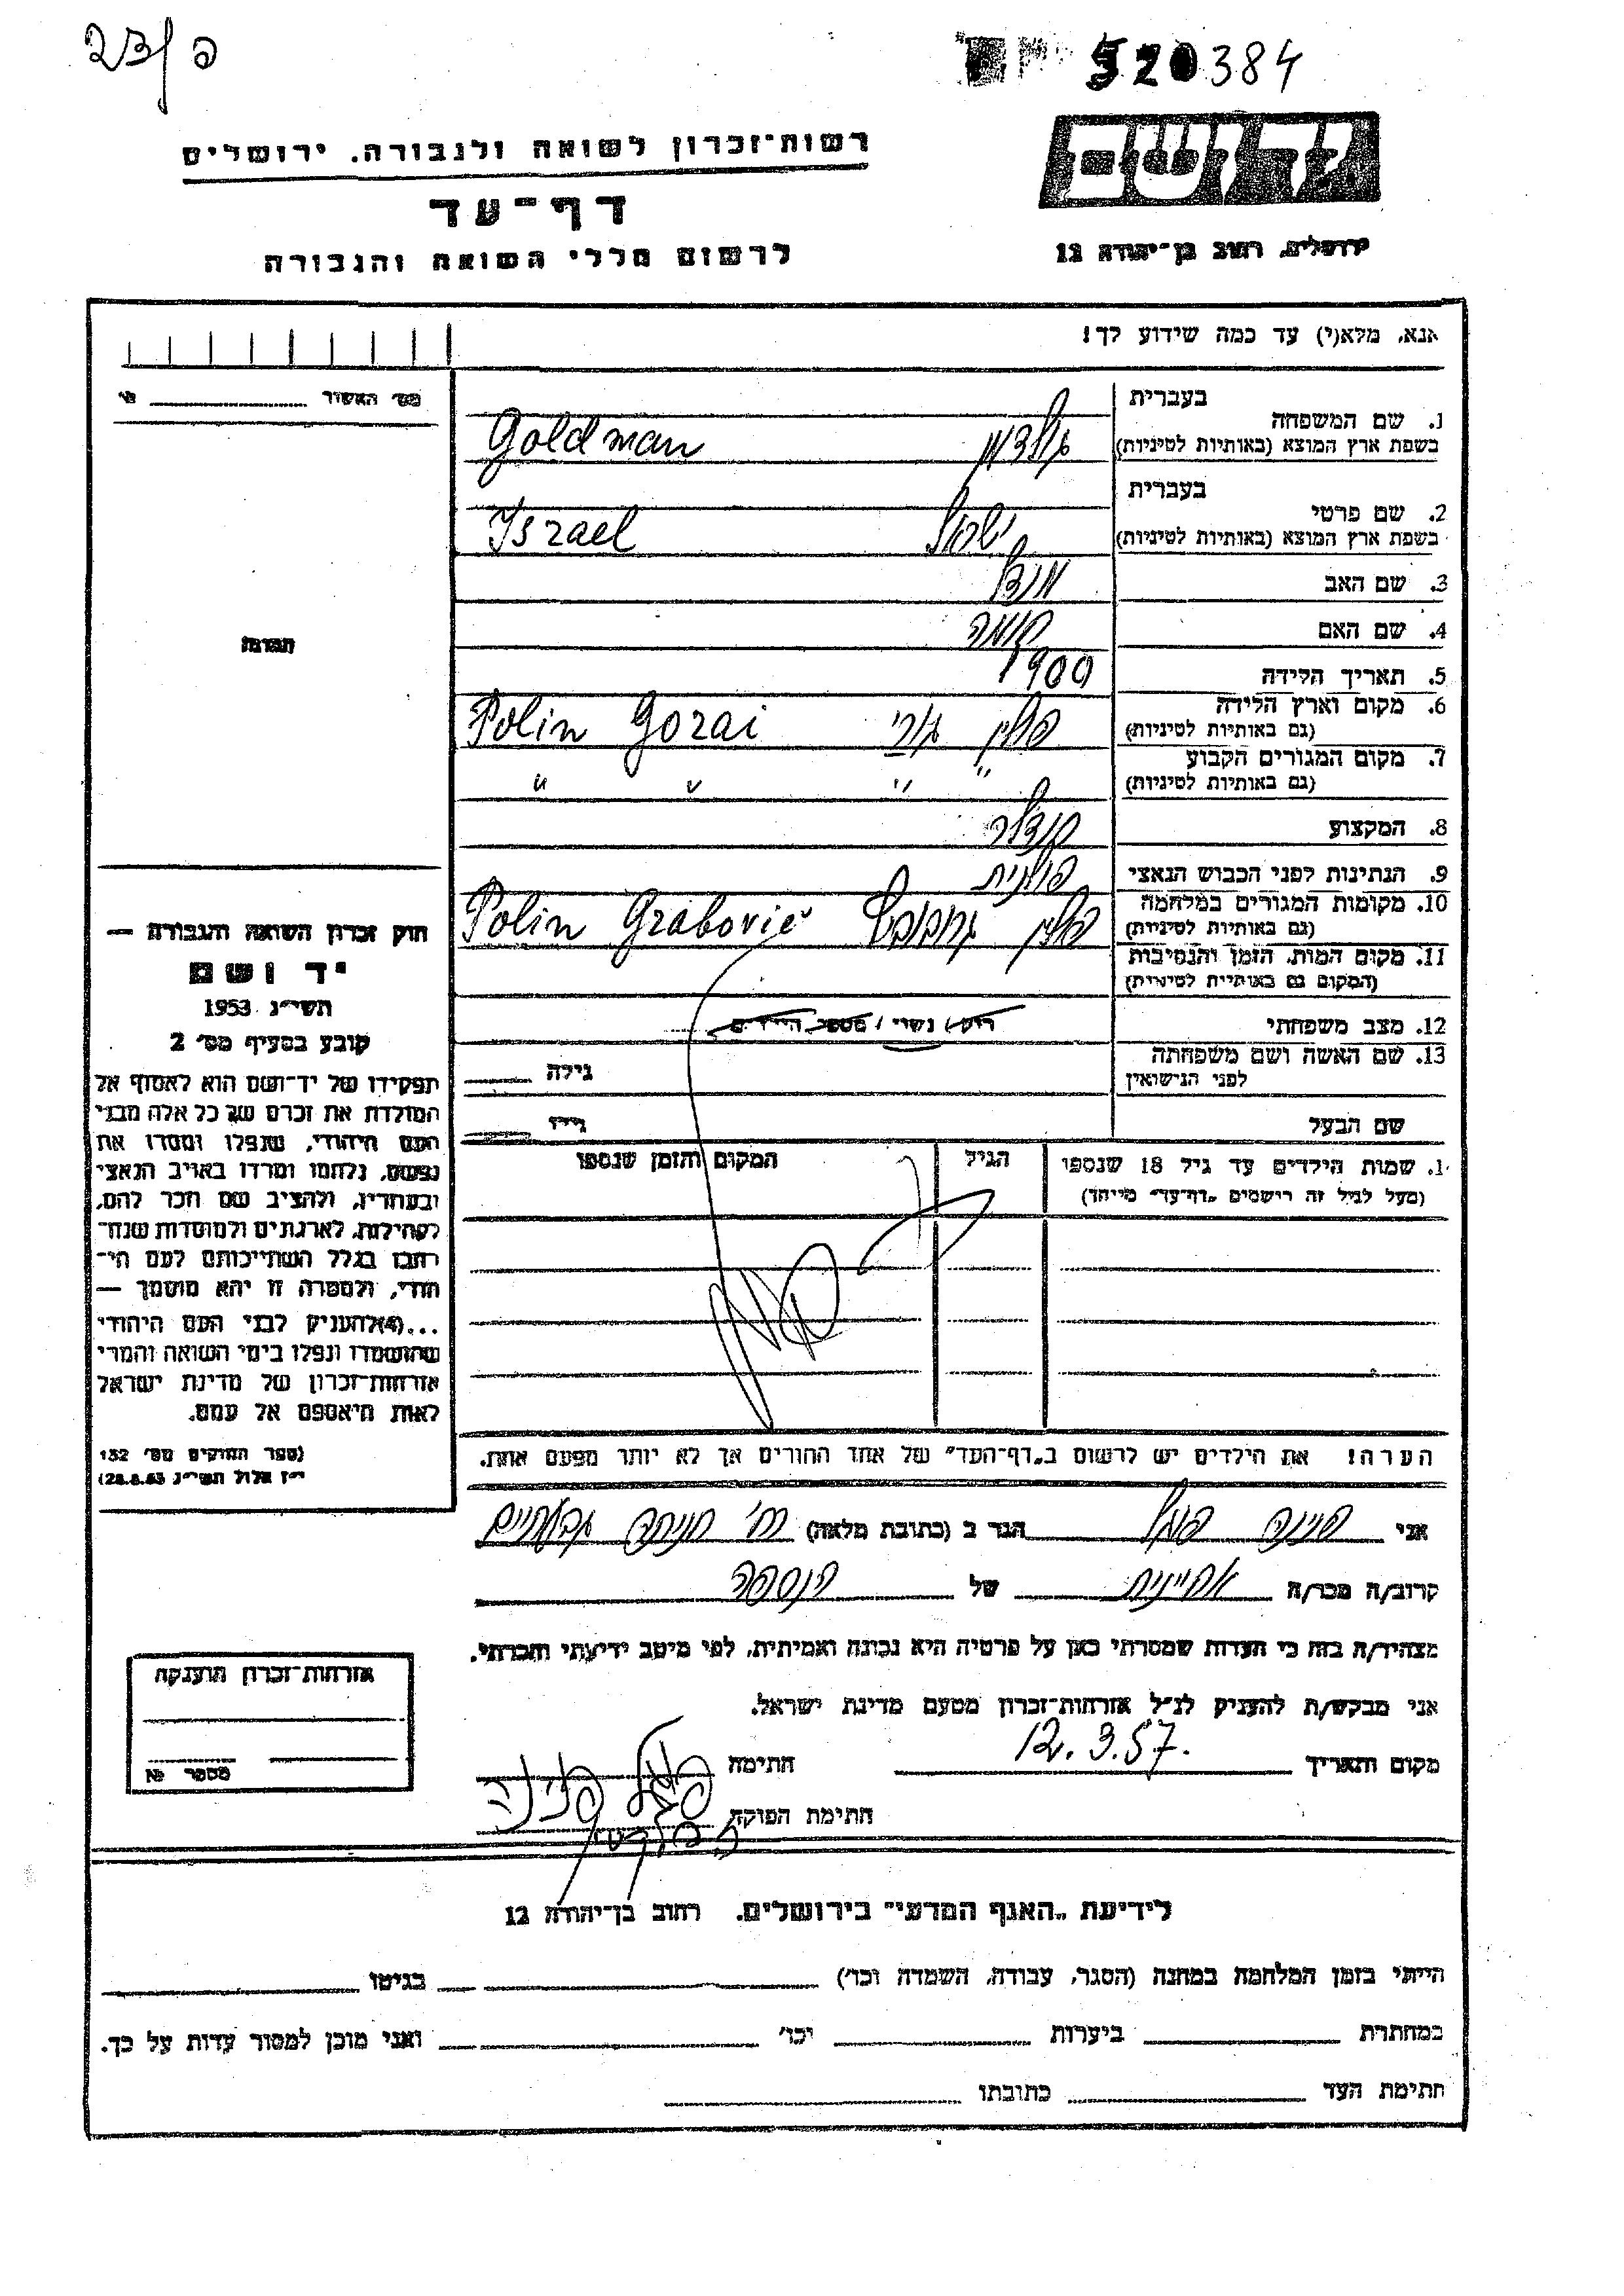 23/פ
520384
רשות־זכרון לשואה ולגבורה, ירושלים
יד ושם
דף־עד
לרשום חללי השואה והגבורה
ירושלים, רחוב בן־יהודה 12
אנא, מלא(י) עד כמה שידוע לך!
מס׳ האשור
בעברית
1. שם המשפחה
גולדמן Goldman
בשפת ארץ המוצא (באותיות לטיניות)
בעברית
2. שם פרטי
ישראל Israel
בשפת ארץ המוצא (באותיות לטיניות)
3. שם האב
4. שם האם
5. תאריך הלידה 1900
6. מקום וארץ הלידה פולין גורי Polin Gorai
(גם באותיות לטיניות)
7. מקום המגורים הקבוע " " " "
(גם באותיות לטיניות)
8. המקצוע
9. הנתינות לפני הכבוש הנאצי פולנית
10. מקומות המגורים במלחמה פולין Polin Grabovie
(גם באותיות לטיניות)
11. מקום המות, הזמן והנסיבות
(המקום גם באותיות לטיניות)
12. מצב משפחתי רווק / נשוי / מספר הילדים
13. שם האשה ושם משפחתה גילה
לפני הנישואין
שם הבעל גילו
1. שמות הילדים עד גיל 18 שנספו הגיל המקום והזמן שנספו
(מעל לגיל זה רושמים „דף־עד" מיוחד)
תמונה
חוק זכרון השואה והגבורה —
יד ושם
תשי״ג 1953
קובע בסעיף מס׳ 2
תפקידו של יד־ושם הוא לאסוף אל
המולדת את זכרם של כל אלה מבני
העם היהודי, שנפלו ומסרו את
נפשם, נלחמו ומרדו באויב הנאצי
ובעוזריו, ולהציב שם וזכר להם,
לקהילות, לארגונים ולמוסדות שנח־
רבו בגלל השתייכותם לעם הי־
הודי, ולמטרה זו יהא מוסמך —
...(4)להעניק לבני העם היהודי
שהושמדו ונפלו בימי השואה והמרי
אזרחות־זכרון של מדינת ישראל
לאות היאספם אל עמם.
(ספר החוקים מס׳ 132
י״ז אלול תשי״ג 28.8.53)
הערה! את הילדים יש לרשום ב„דף־העד" של אחד ההורים אך לא יותר מפעם אחת.
אני פנינה הגר ב (כתובת מלאה) גבעתיים
קרוב/ה מכר/ה אחיינית של הנספה
מצהיר/ה בזה כי העדות שמסרתי כאן על פרטיה היא נכונה ואמיתית, לפי מיטב ידיעתי והכרתי.
אני מבקש/ת להעניק לנ״ל אזרחות־זכרון מטעם מדינת ישראל.
מקום ותאריך 12.3.57. חתימה
חתימת הפוקד
אזרחות־זכרון הוענקה
מספר
לידיעת „האגף המדעי" בירושלים, רחוב בן־יהודה 12
הייתי בזמן המלחמה במחנה (הסגר, עבודה, השמדה וכו׳) בגיטו
במחתרת ביערות וכו׳ ואני מוכן למסור עדות על כך.
חתימת העד כתובתו